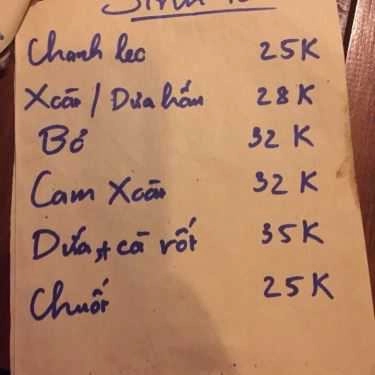 Sinh tố
Chanh leo 25K
Xoài / Dưa hấu 28K
Bơ 32K
Cam Xoài 32K
Dứa + cà rốt 35K
Chuối 25K